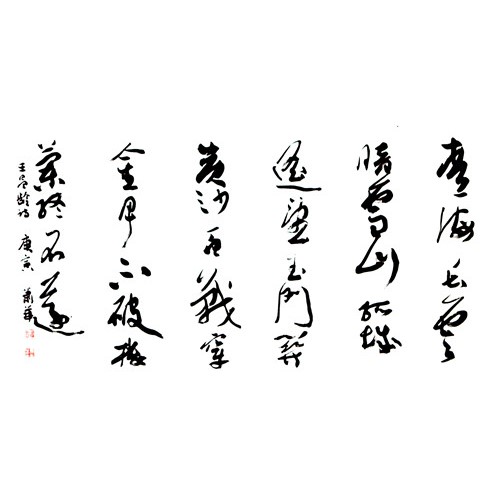 青海长雲
暗雪山孤城
遥望玉门関
黄沙百战穿
金甲不破楼
蘭终不還
王昌龄诗 庚寅